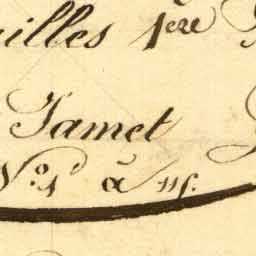 illes 1ere
Jamet
N.os 1 à